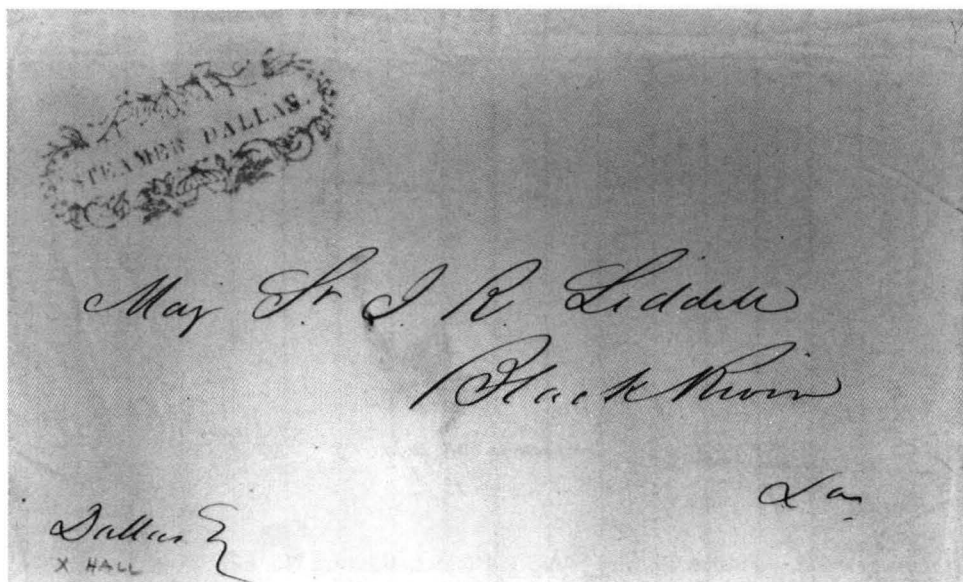 STEAMER DALLAS.
Maj St J R Liddell
Black River
La
Dallas
X HALL